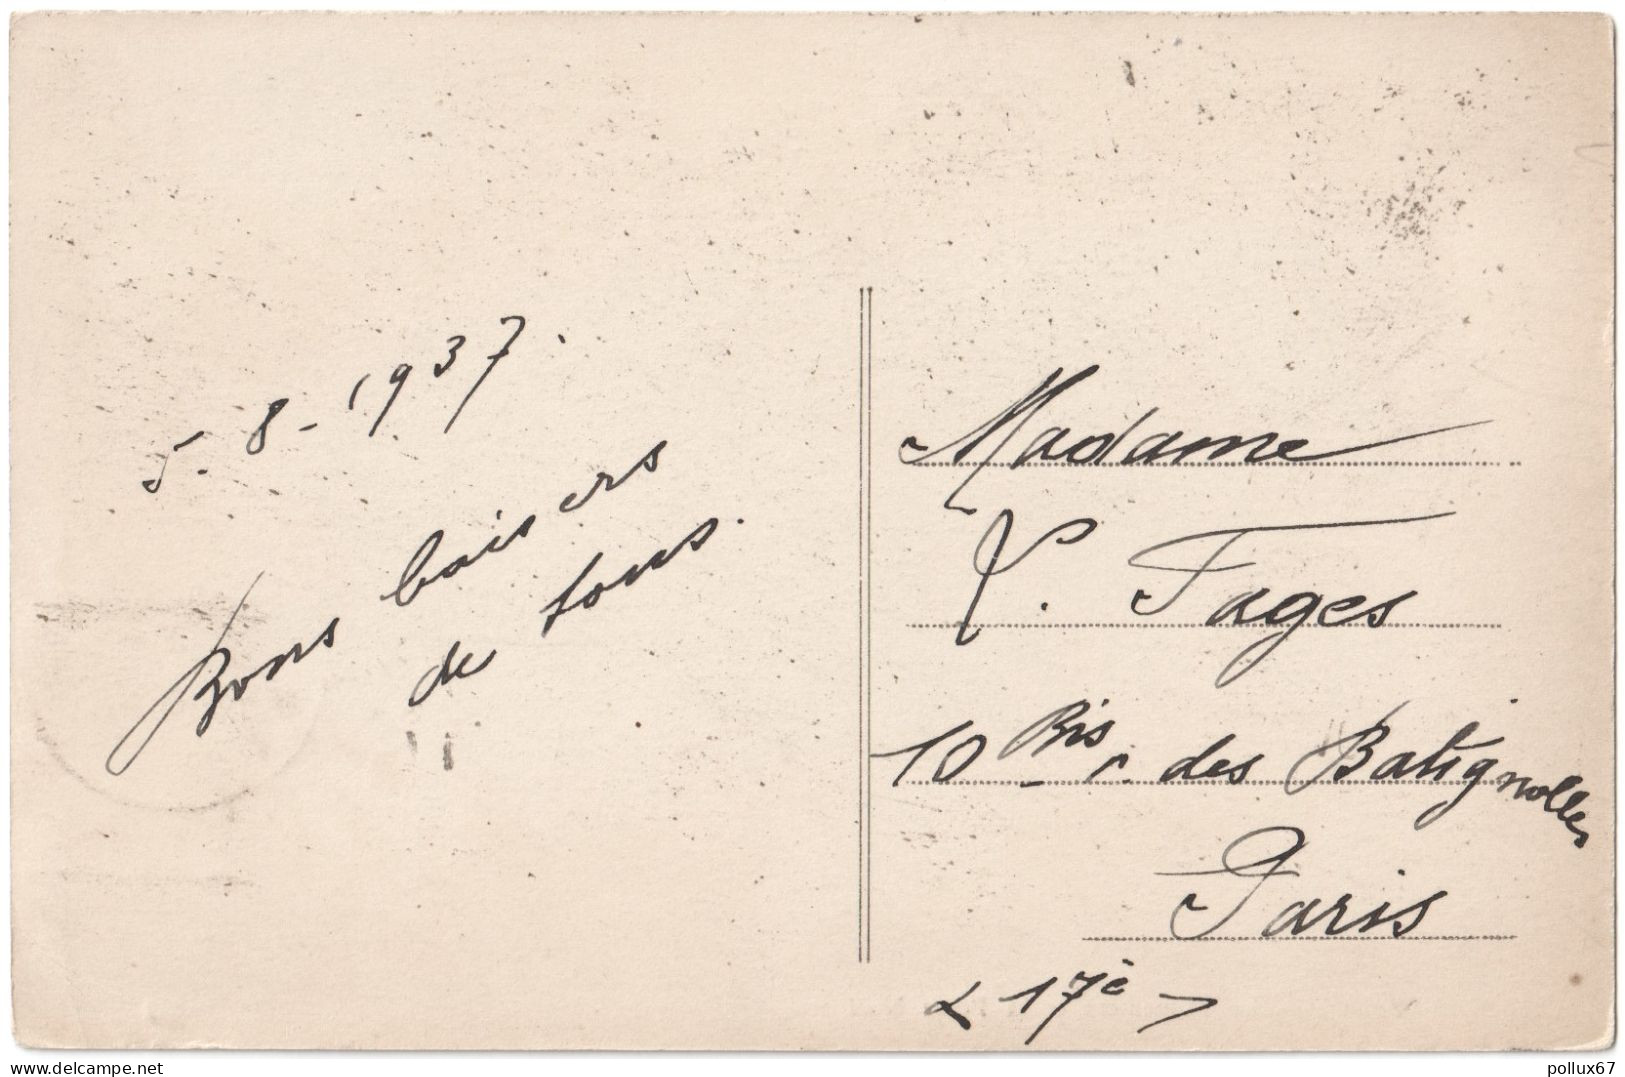 5-8-1937.
Bons baisers
de tous.
Madame
P. Fages
10 Bis r. des Batignolles
Paris
(17è)
www.delcampe.net
pollux67